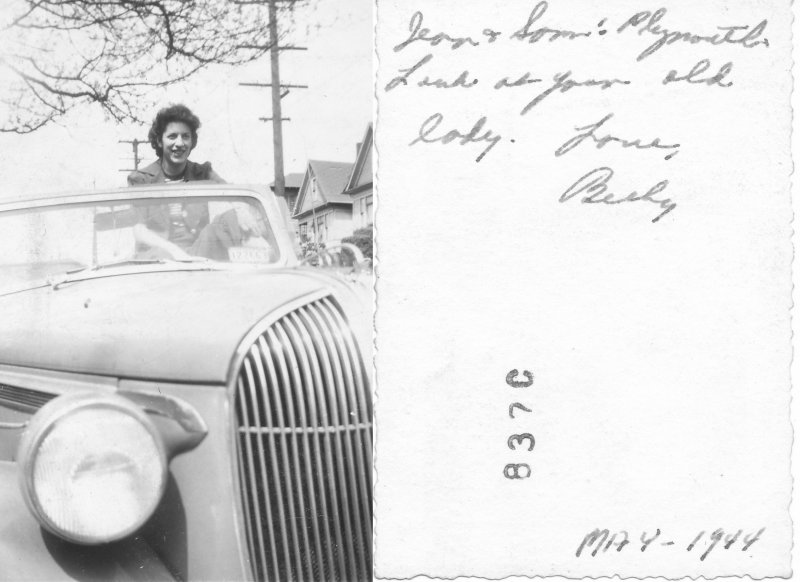 Jean & Som's Plymouth.
Look at your old
lady. Love,
Becky
837C
MAY - 1944